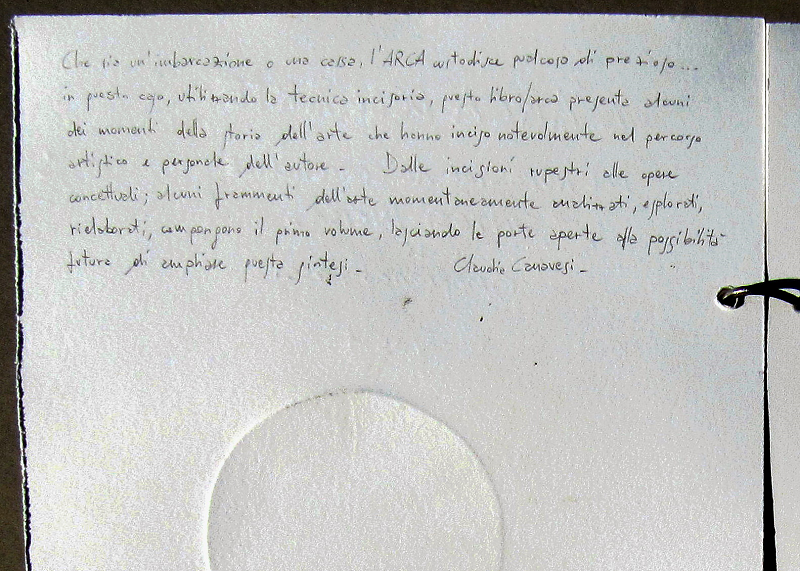 Che sia un'imbarcazione o una cassa, l'ARCA custodisce qualcosa di prezioso...
in questo caso, utilizzando la tecnica incisoria, questo libro/arca presenta alcuni
dei momenti della storia dell'arte che hanno inciso notevolmente nel percorso
artistico e personale dell'autore - Dalle incisioni rupestri alle opere
concettuali; alcuni frammenti dell'arte momentaneamente analizzati, esplorati,
rielaborati, compongono il primo volume, lasciando le porte aperte alla possibilità
futura di ampliare questa sintesi - Claudia Canavesi -